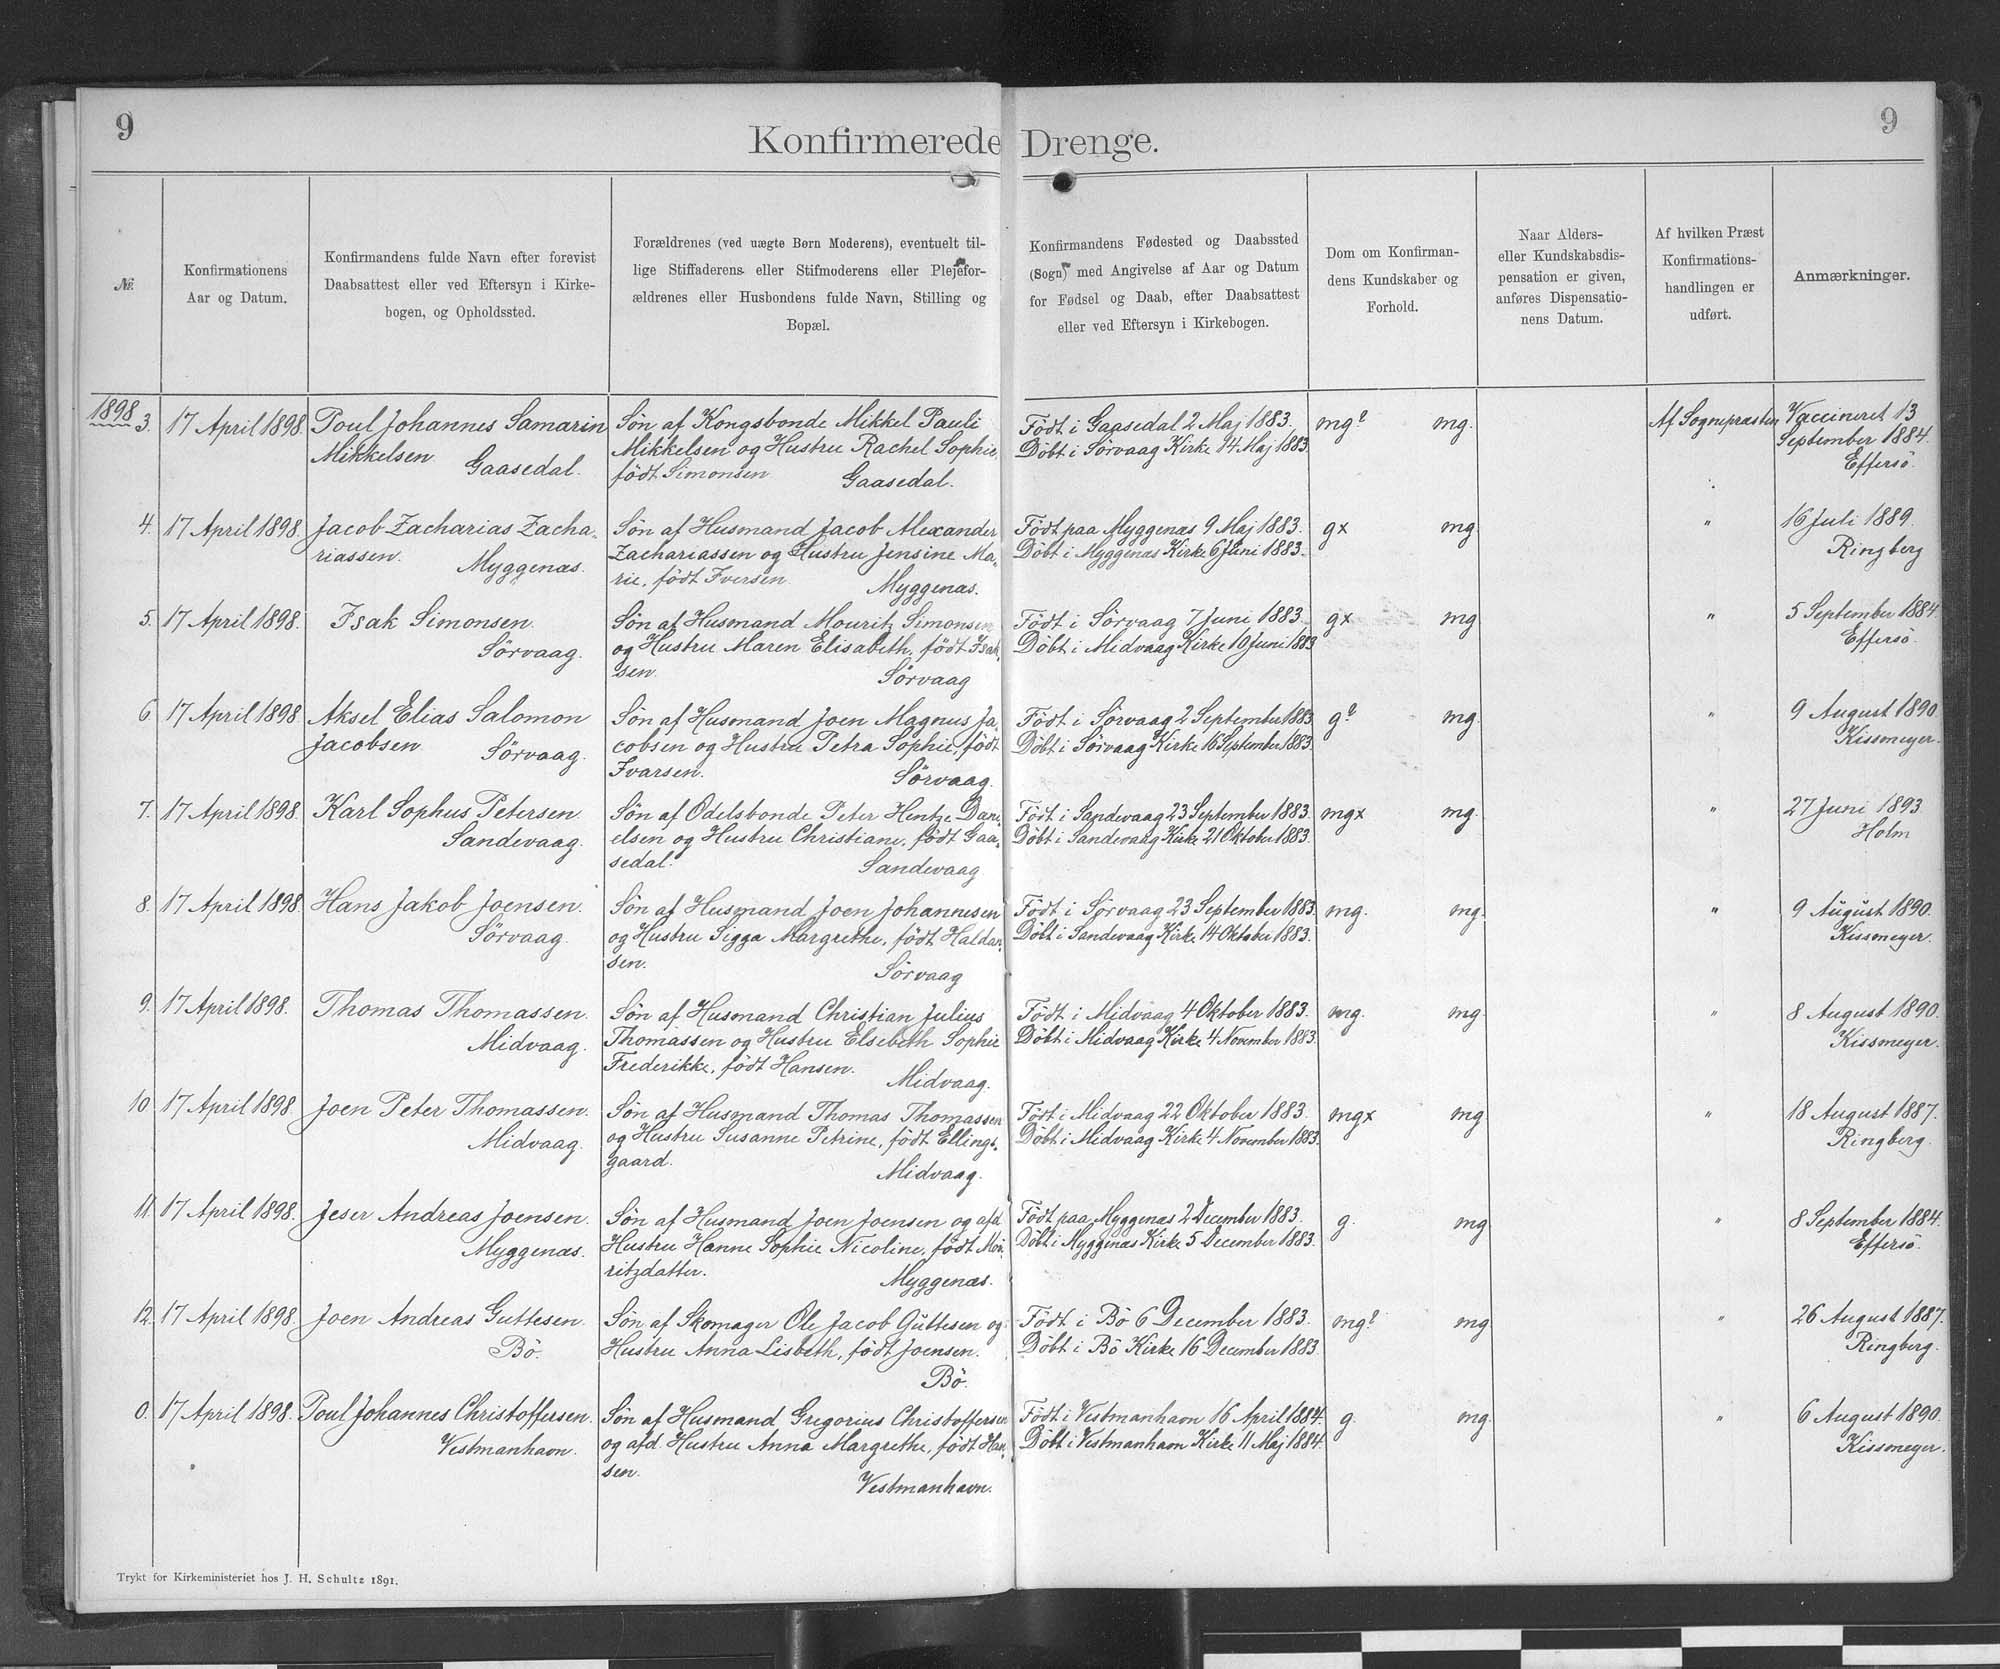 9
9
Konfirmerede Drenge.
№
Konfirmationens
Aar og Datum.
Konfirmandens fulde Navn efter forevist
Daabsattest eller ved Eftersyn i Kirke-
bogen, og Opholdssted.
Forældrenes (ved uægte Børn Moderens), eventuelt til-
lige Stiffaderens eller Stifmoderens eller Plejefor-
ældrenes eller Husbondens fulde Navn, Stilling og
Bopæl.
Konfirmandens Fødested og Daabssted
(Sogn) med Angivelse af Aar og Datum
for Fødsel og Daab, efter Daabsattest
eller ved Eftersyn i Kirkebogen.
Dom om Konfirman-
dens Kundskaber og
Forhold.
Naar Alders-
eller Kundskabsdis-
pensation er given,
anføres Dispensatio-
nens Datum.
Af hvilken Præst
Konfirmations-
handlingen er
udført.
Anmærkninger.
1898
3. 17 April 1898. Poul Johannes Samarin
Mikkelsen
Gaasedal.
Søn af Kongsbonde Mikkel Pauli
Mikkelsen og Hustru Rachel Sophie,
født Simonsen
Gaasedal.
Født i Gaasedal 2 Maj 1883.
Døbt i Sörvaag Kirke 14 Maj 1883
mg? mg. Af Sognepræsten
Vaccineret 13
September 1884.
Effersö.
4. 17 April 1898. Jacob Zacharias Zacha-
riassen.
Myggenæs.
Søn af Husmand Jacob Alexander
Zachariassen og Hustru Jensine Ma-
rie, født Iversen.
Myggenæs.
Født paa Myggenæs 9 Maj 1883.
Döbt i Myggenæs Kirke 6 Juni 1883.
gx mg "
16 Juli 1889.
Ringberg
5. 17 April 1898. Isak Simonsen
Sörvaag.
Søn af Husmand Mouritz Simonsen
og Hustru Maren Elisabeth, født Isak-
sen.
Sörvaag
Født i Sörvaag 7 Juni 1883.
Döbt i Midvaag Kirke 10 Juni 1883
gx mg "
5 September 1884
Effersö.
6 17 April 1898 Aksel Elias Salomon
Jacobsen
Sörvaag.
Søn af Husmand Joen Magnus Ja-
cobsen og Hustru Petra Sophie, født
Ivarsen.
Sörvaag.
Født i Sörvaag 2 September 1883.
Döbt i Sörvaag Kirke 16 September 1883.
g? mg. "
9 August 1890.
Kissmeyer.
7. 17 April 1898. Karl Sophus Petersen.
Sandevaag.
Søn af Odelsbonde Peter Hentze Dani-
elsen og Hustru Christiane, født Gaa-
sedal.
Sandevaag
Født i Sandevaag 23 September 1883.
Döbt i Sandevaag Kirke 21 Oktober 1883.
mgx mg. "
27 Juni 1893
Holm
8. 17 April 1898 Hans Jakob Joensen.
Sörvaag.
Søn af Husmand Joen Johannesen
og Hustru Sigga Margrethe, født Haldan-
sen.
Sörvaag
Født i Sörvaag 23 September 1883.
Döbt i Sandevaag Kirke 14 Oktober 1883.
mg. mg. "
9 August 1890.
Kissmeyer.
9. 17 April 1898. Thomas Thomassen.
Midvaag.
Søn af Husmand Christian Julius
Thomassen og Hustru Elsebeth Sophie
Frederikke, født Hansen.
Midvaag.
Født i Midvaag 4 Oktober 1883.
Döbt i Midvaag Kirke 4 November 1883.
mg. mg. "
8 August 1890.
Kissmeyer.
10 17 April 1898. Joen Peter Thomassen.
Midvaag.
Søn af Husmand Thomas Thomassen
og Hustru Susanne Petrine, født Ellings-
gaard.
Midvaag.
Født i Midvaag 22 Oktober 1883.
Döbt i Midvaag Kirke 4 November 1883.
mgx mg "
18 August 1887.
Ringberg.
11. 17 April 1898. Jeser Andreas Joensen.
Myggenæs.
Søn af Husmand Joen Joensen og afd
Hustru Hanne Sophie Nicoline, født Mou-
ritzdatter.
Myggenæs.
Født paa Myggenæs 2 December 1883.
Döbt i Myggenæs Kirke 5 December 1883.
g. mg "
8 September 1884.
Effersö.
12. 17 April 1898. Joen Andreas Guttesen.
Bö.
Søn af Skomager Ole Jacob Guttesen og
Hustru Anna Lisbeth, født Joensen.
Bö.
Født i Bö 6 December 1883.
Döbt i Bö Kirke 16 December 1883.
mg? mg "
26 August 1887.
Ringberg.
0. 17 April 1898. Poul Johannes Christoffersen.
Vestmanhavn.
Søn af Husmand Gregorius Christoffersen
og afd. Hustru Anna Margrethe, født Han-
sen.
Vestmanhavn.
Født i Vestmanhavn 16 April 1884.
Döbt i Vestmanhavn Kirke 11 Maj 1884.
g. mg. "
6 August 1890.
Kissmeyer.
Trykt for Kirkeministeriet hos J. H. Schultz 1891.